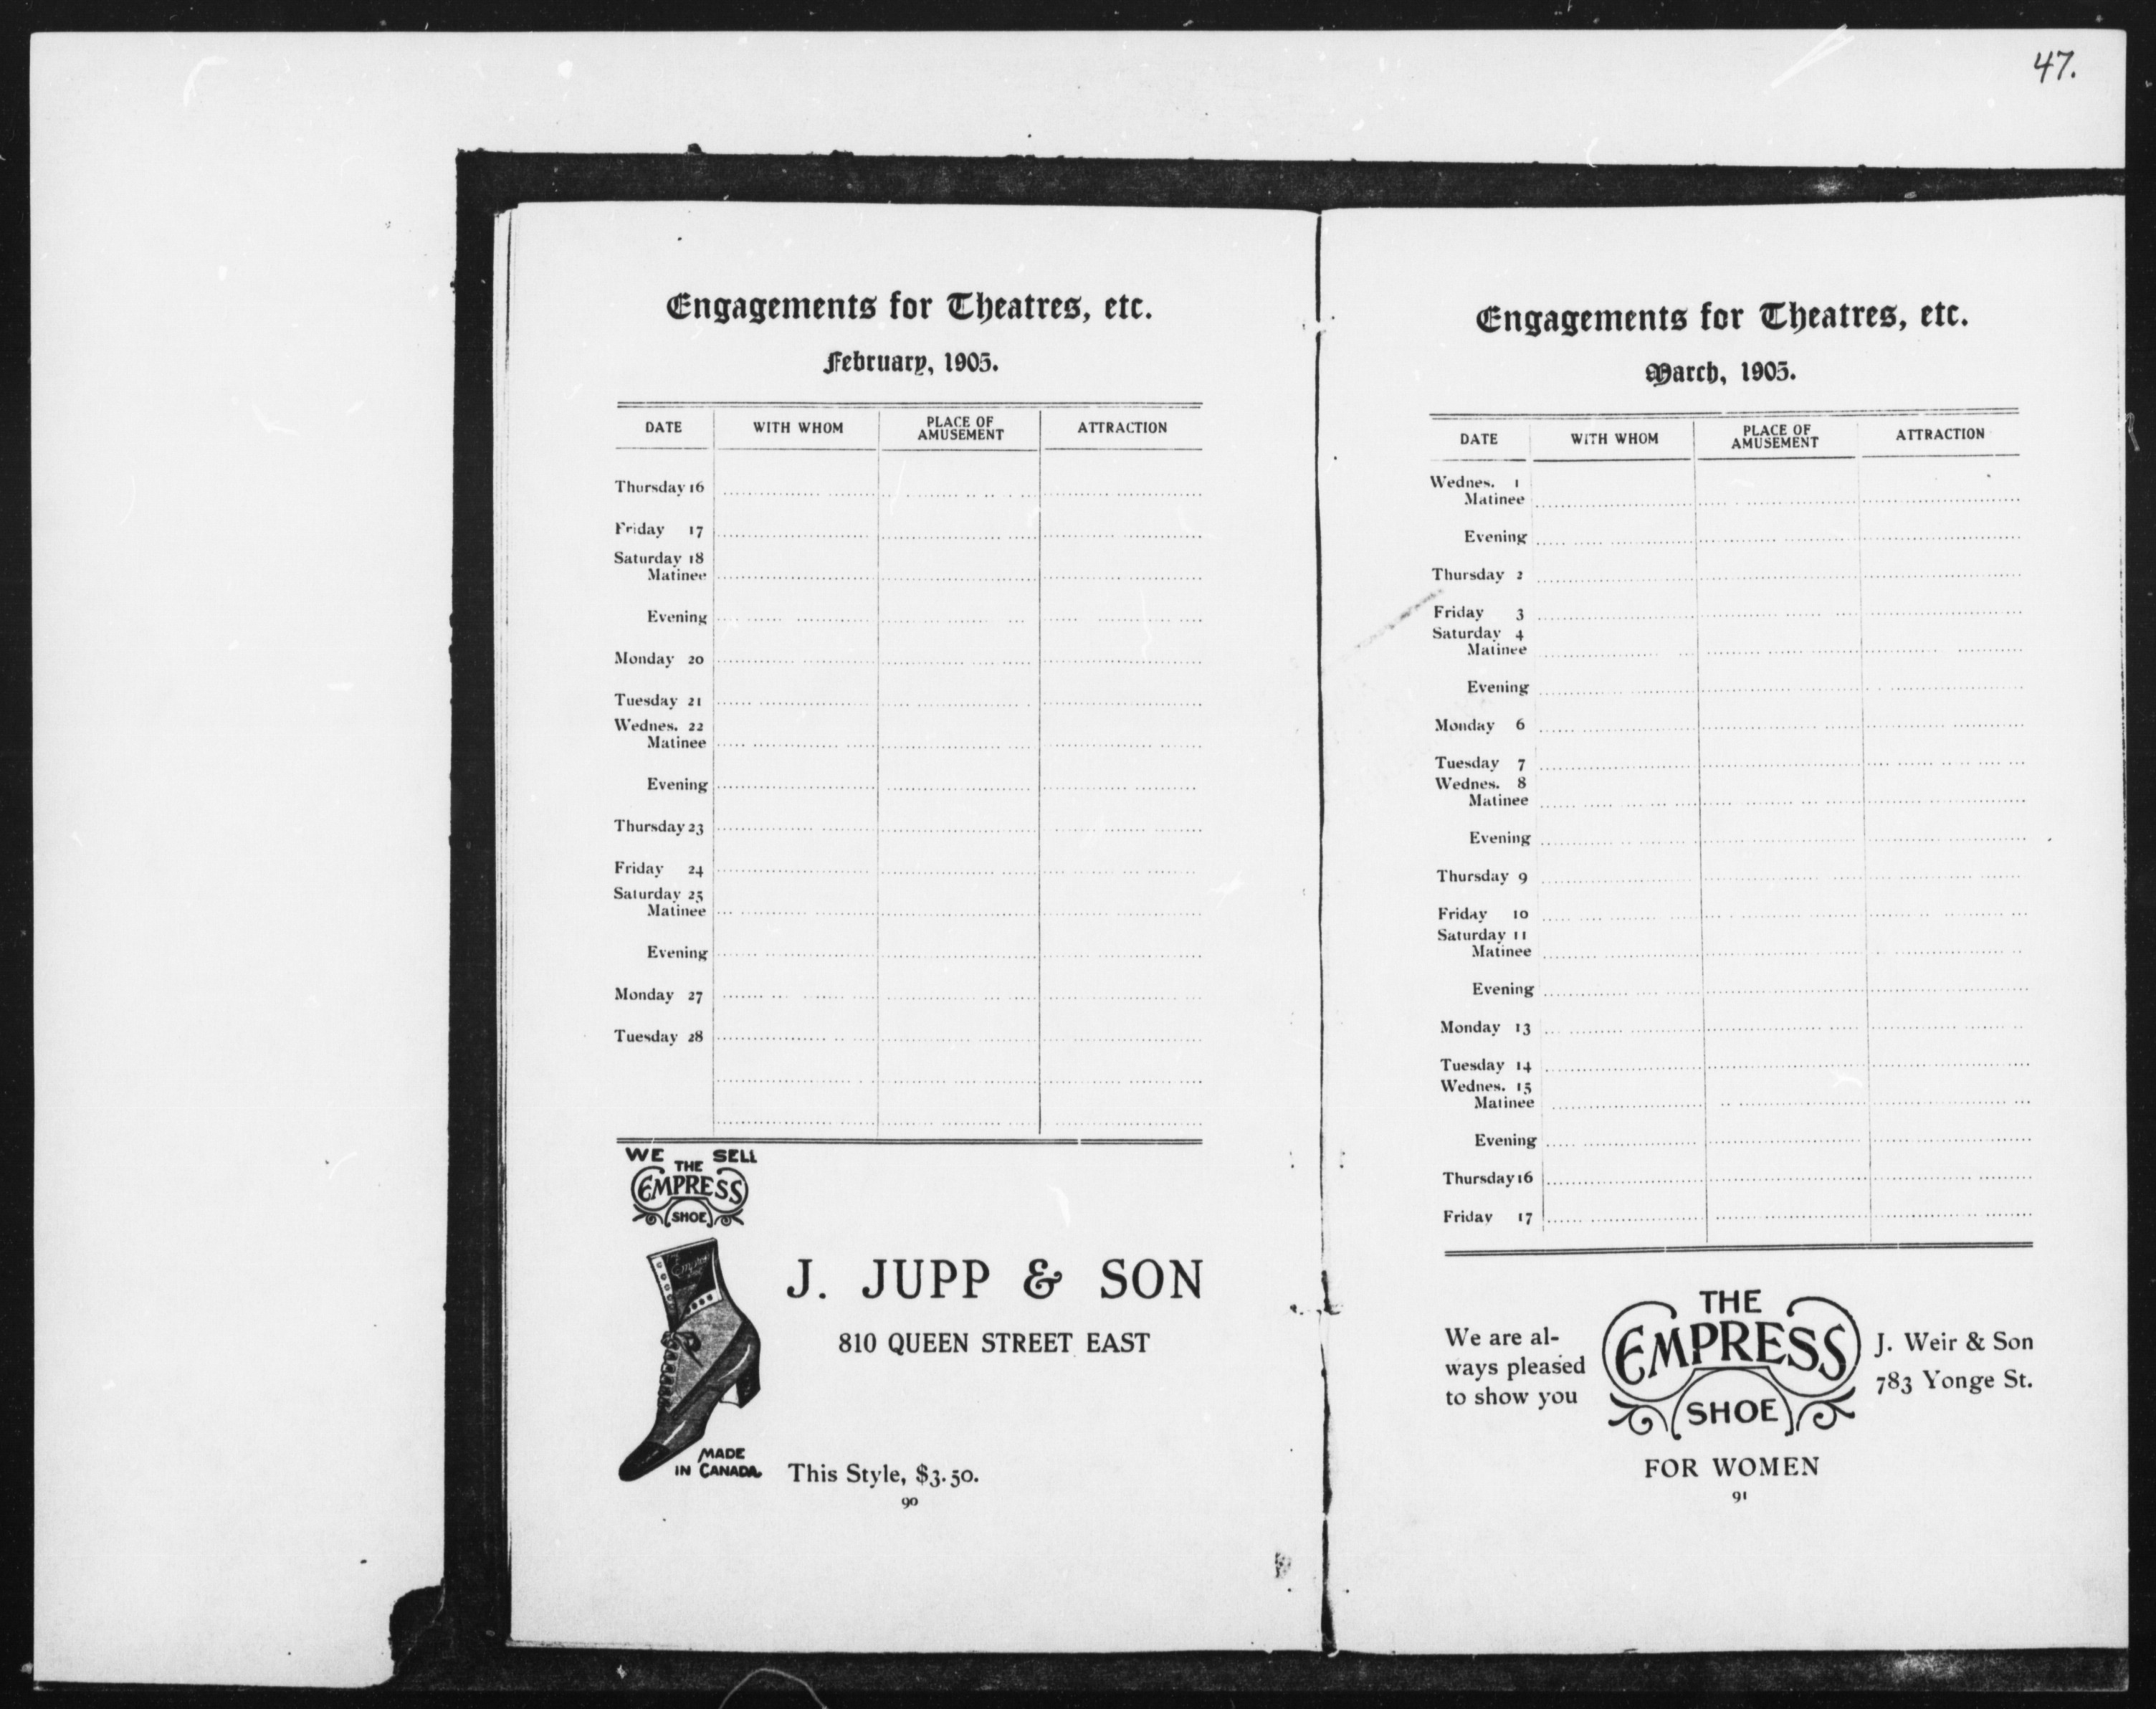 47.
Engagements for Theatres, etc.
February, 1905.
DATE WITH WHOM PLACE OF AMUSEMENT ATTRACTION
Thursday 16
Friday 17
Saturday 18
Matinee
Evening
Monday 20
Tuesday 21
Wednes. 22
Matinee
Evening
Thursday 23
Friday 24
Saturday 25
Matinee
Evening
Monday 27
Tuesday 28
WE SELL
THE
EMPRESS
SHOE
Empress
J. JUPP & SON
810 QUEEN STREET EAST
MADE
IN CANADA
This Style, $3.50.
90
Engagements for Theatres, etc.
March, 1905.
DATE WITH WHOM PLACE OF AMUSEMENT ATTRACTION
Wednes. 1
Matinee
Evening
Thursday 2
Friday 3
Saturday 4
Matinee
Evening
Monday 6
Tuesday 7
Wednes. 8
Matinee
Evening
Thursday 9
Friday 10
Saturday 11
Matinee
Evening
Monday 13
Tuesday 14
Wednes. 15
Matinee
Evening
Thursday 16
Friday 17
We are al-
ways pleased
to show you
THE
EMPRESS
SHOE
J. Weir & Son
783 Yonge St.
FOR WOMEN
91